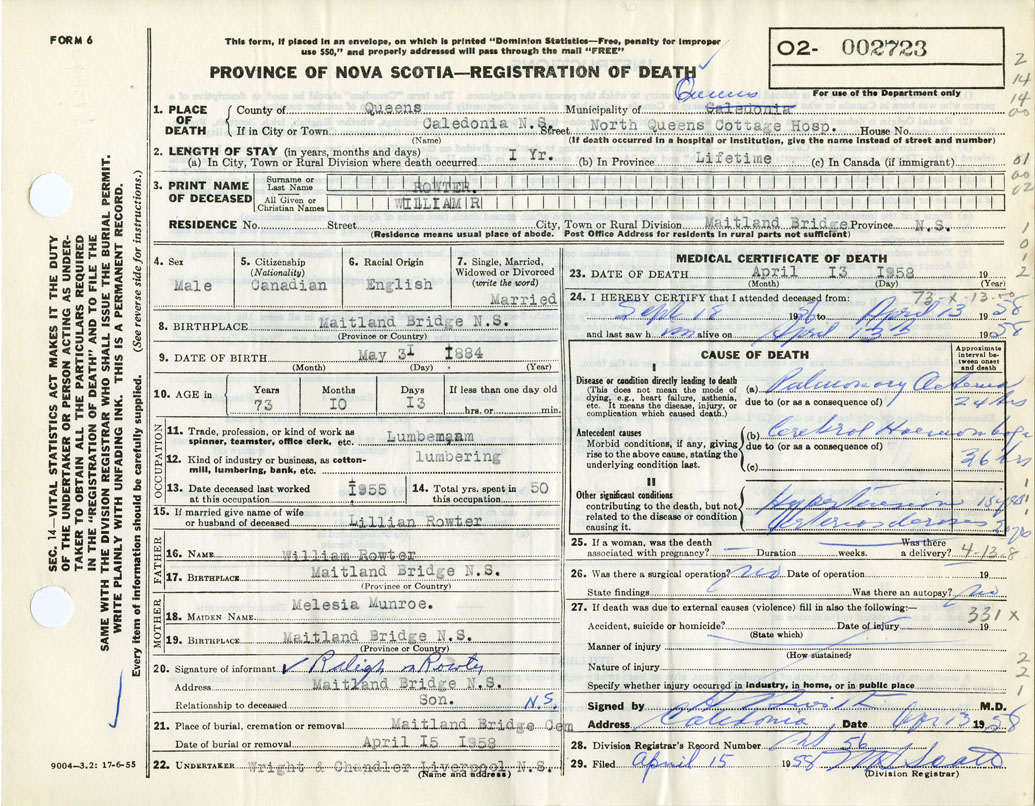 FORM 6
This form, if placed in an envelope, on which is printed "Dominion Statistics—Free, penalty for improper
use $50," and properly addressed will pass through the mail "FREE"
PROVINCE OF NOVA SCOTIA—REGISTRATION OF DEATH
02- 002723
For use of the Department only
SEC. 14—VITAL STATISTICS ACT MAKES IT THE DUTY
OF THE UNDERTAKER OR PERSON ACTING AS UNDER-
TAKER TO OBTAIN ALL THE PARTICULARS REQUIRED
IN THE "REGISTRATION OF DEATH" AND TO FILE THE
SAME WITH THE DIVISION REGISTRAR WHO SHALL ISSUE THE BURIAL PERMIT.
WRITE PLAINLY WITH UNFADING INK. THIS IS A PERMANENT RECORD.
Every item of information should be carefully supplied. (See reverse side for instructions.)
Queens
1. PLACE OF DEATH County of Queens Municipality of Caledonia
If in City or Town Caledonia N.S. Street North Queens Cottage Hosp. House No.
(Name) (If death occurred in a hospital or institution, give the name instead of street and number)
2. LENGTH OF STAY (in years, months and days)
(a) In City, Town or Rural Division where death occurred I Yr. (b) In Province Lifetime (c) In Canada (if immigrant)
3. PRINT NAME OF DECEASED Surname or Last Name ROWTER.
All Given or Christian Names WILLIAM R
RESIDENCE No. Street City, Town or Rural Division Maitland Bridge Province N.S.
(Residence means usual place of abode. Post Office Address for residents in rural parts not sufficient)
4. Sex Male
5. Citizenship (Nationality) Canadian
6. Racial Origin English
7. Single, Married, Widowed or Divorced (write the word) Married
8. BIRTHPLACE Maitland Bridge N.S.
(Province or Country)
9. DATE OF BIRTH May 3I I884
(Month) (Day) (Year)
10. AGE in Years 73 Months IO Days I3 If less than one day old hrs. or min.
OCCUPATION
11. Trade, profession, or kind of work as spinner, teamster, office clerk, etc. Lumbemaam
12. Kind of industry or business, as cotton-mill, lumbering, bank, etc. lumbering
13. Date deceased last worked at this occupation I955 14. Total yrs. spent in this occupation 50
15. If married give name of wife or husband of deceased Lillian Rowter
FATHER
16. NAME William Rowter
17. BIRTHPLACE Maitland Bridge N.S.
(Province or Country)
MOTHER
18. MAIDEN NAME Melesia Munroe.
19. BIRTHPLACE Maitland Bridge N.S.
(Province or Country)
20. Signature of informant Raligh Rowter
Address Maitland Bridge N.S.
Relationship to deceased Son. N.S.
21. Place of burial, cremation or removal Maitland Bridge Cem
Date of burial or removal April I5 I958
22. UNDERTAKER Wright & Chandler Liverpool N.S.
(Name and address)
9004—3.2: 17-6-55
MEDICAL CERTIFICATE OF DEATH
23. DATE OF DEATH April I3 I958 19
(Month) (Day) (Year)
73-X-13-00
24. I HEREBY CERTIFY that I attended deceased from:
Sept 18 1956 to April 13 1958
and last saw him alive on April 13th 1958
CAUSE OF DEATH
Approximate interval between onset and death
I
Disease or condition directly leading to death
(This does not mean the mode of dying, e.g., heart failure, asthenia, etc. It means the disease, injury, or complication which caused death.)
(a) Pulmonary Oedema
due to (or as a consequence of) 24 hrs
Antecedent causes
Morbid conditions, if any, giving rise to the above cause, stating the underlying condition last.
(b) Cerebral Haemorrhage
due to (or as a consequence of) 36 hrs
(c)
II
Other significant conditions
contributing to the death, but not related to the disease or condition causing it.
Hypertension
Arteriosclerosis
25. If a woman, was the death associated with pregnancy? Duration weeks. Was there a delivery? 4-13-8
26. Was there a surgical operation? no Date of operation 19
State findings Was there an autopsy? no
27. If death was due to external causes (violence) fill in also the following:—
331 X
Accident, suicide or homicide? Date of injury 19
(State which)
Manner of injury
(How sustained)
Nature of injury
Specify whether injury occurred in industry, in home, or in public place
Signed by M.D.
Address Caledonia Date Apr 13 1958
28. Division Registrar's Record Number 56
29. Filed April 15 1958 Scott
(Division Registrar)